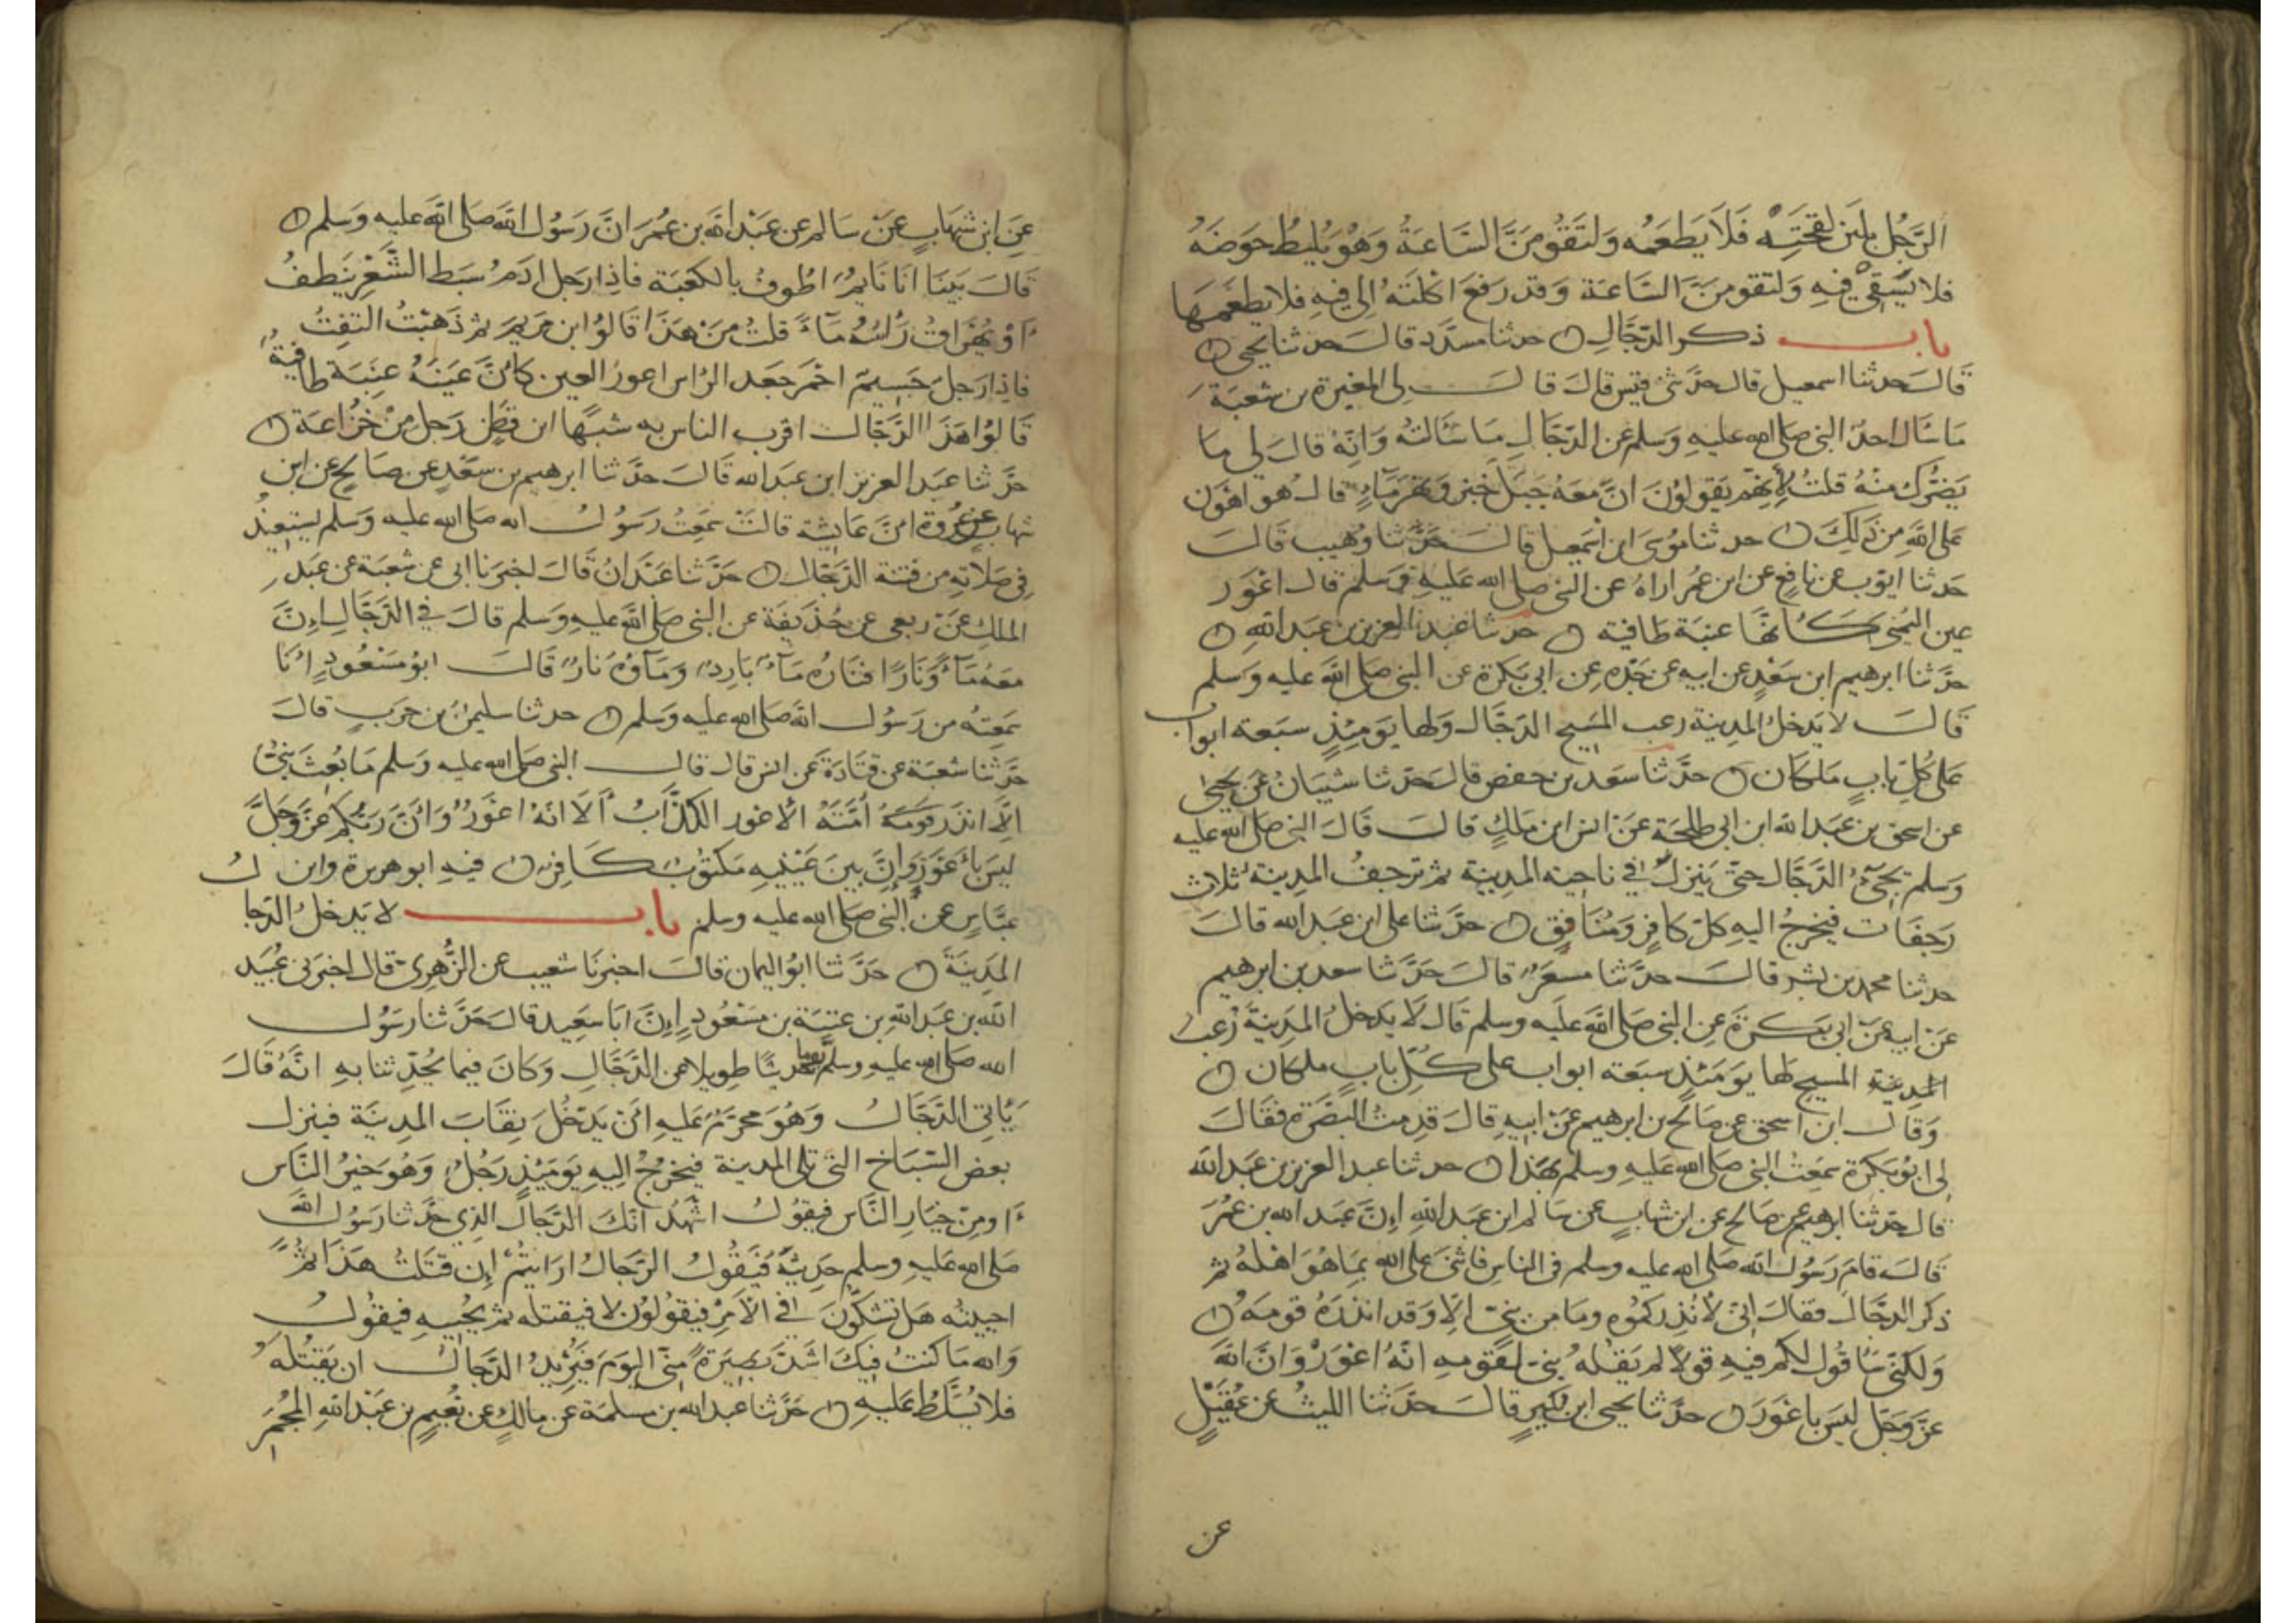 الرَّجُل بلبَن لِقحَتِه فَلا يَطعَمُه وَلتَقُومَنَّ السَّاعَةُ وَهُوَ يُليطُ حَوضَهُ
فلا يَسْقي فِيهِ وَلتقومَنَّ السَّاعَة وَقد رَفعَ اكلَتَهُ الى فيهِ فلا يطعَمهَا
باب ذكر الدَّجَّالِ حدثنا مسدَّد قالَ حدثنا يحيى
قالَ حدثنا اسمعيل قال حدَّثنى قيس قال قالَ لى المغيرة بن شعبَة
مَا سَأل احدٌ النبى صلى الله عليهِ وَسلم عن الدّجَّالِ مَا سَألتهُ وَانّهُ قالَ لى مَا
يَضرُّك منهُ قلتُ لِأنهم يَقولونَ انَّ مَعَهُ جبَل خبز وَنهر مَآءٍ قال هو اهوَن
على اللهِ من ذَلكَ حدثنا موسَى ابن اسمعيل قالَ حَدَّثنا وُهيب قالَ
حَدثنا ايوب عن نافع عن ابن عمُر اراهُ عن النبى صلى الله عَليهِ وَسلم قال اعوَر
عين اليُمنى كَأنهَّا عنبَة طافية حدثنا عبد العزيز بن عَبد اللهِ
حدَّثنا ابرهيم ابن سَعدٍ عن ابيه عن جَدّه عِن ابى بَكرَة عن النبى صلى الله عليه وَسلم
قالَ لا يَدخلُ المدِينة رعب المَسيح الدَّجَّال وَلها يَومَئذٍ سَبعة ابواب
عَلى كلِّ بابٍ مَلكان حدَّثنا سَعد بن حَفص قالَ حَدثنا شَيبَانُ عن يَحيى
عن اسحق بن عَبد الله ابن ابى طلحَة عَن انس ابن مَلكٍ قالَ قالَ النبى صَلى الله عليه
وَسلم يَجىءُ الدَّجَّال حتى يَنزلَ في ناحيَة المدِينة ثم ترجفُ المدِينة ثلاث
رَجفات فيَخرجُ اليهِ كلّ كافرٍ وَمُنافِق حدَّثنا على ابن عَبد الله قالَ
حدثنا محمد بن بشر قالَ حدَّثنا مسعَرٌ قالَ حَدَّثنا سعد بن ابرهيم
عَن ابيه عَن ابى بَكرَة عَن النبى صَلى الله عَليه وسلم قال لَا يَدخلُ المَدِينَة رُعب
المدينة المسيح لها يوَمَئذٍ سَبعَة ابواب على كُلّ بابٍ ملكان
وَقالَ ابن اسحق عن صَالح بن ابرهيم عَن ابيهِ قالَ قدِمتُ البَصَرَة فقَالَ
لى ابوُ بَكرَة سَمعتُ النبى صَلى الله عَليهِ وسلم بهَذا حدثنا عبد العزيز بن عَبد الله
قال حدَّثنا ابرهيم عن صَالح عن ابن شهابٍ عن سَالم ابن عَبد اللهِ اِنَّ عَبد الله بن عمُرَ
قالَ قامَ رَسُول الله صَلى الله عليه وسلم فى الناسِ فاثنىَ على الله بمَا هُوَ اهلهُ ثم
ذكر الدجَّال فقالَ انىّ لأنذِركمُوه ومَا من نبىّ الّا وَقد انذرَهُ قومَهُ
وَلكنّى سَاقُول لكم فيهِ قولاً لم يَقلهُ نبىّ لقَومِه انّهُ اعوَرُ وَانّ اللهَ
عزَّ وَجَلّ ليسَ باعوَر حدَّثنا يحيى ابن بُكيرٍ قالَ حدَّثنا الليثُ عَن عُقَيلٍ
عن
عَن ابن شهَابٍ عَن سَالم عن عَبد الله بن عُمَر انَّ رَسُول الله صَلى الله عليه وَسلم
قالَ بَينَا انَا نَايمٌ اطُوفُ بالكعبَة فاذا رَجل ادَمُ سَبَط الشَّعر يَنطفُ
اَوْ يُهَراقُ رَأسُهُ مَآءً قلتُ مَن هَذَا قالوُا ابن مَريَم ثم ذَهَبتُ التفِتُ
فاذا رَجلَ جَسِيمٌ احمَر جعَد الرَّاس اعورُ العين كانَّ عَينَهُ عنَبَة طافيَةُ
قالوُا هَذَا الدَّجَّالُ اقرب الناس به شبَهًا ابن قَطنٍ رَجل مِنْ خُزاعَة
حدَّثنا عَبد العزيز ابن عَبد الله قَالَ حَدَّثنا ابرهيم بن سَعْدٍ عن صَالحٍ عن ابن
شهابٍ عن عُروَة انَّ عَايشة قالتْ سمعتُ رَسُولُ الله صَلى الله عليه وَسلم يَستعيذُ
فى صَلَاتهِ مِن فتنة الدَّجَّالِ حَدَّثنا عَبدَانُ قَالَ اخبرنا ابى عن شعبَة عن عَبد
الملكِ عَن ربعى عن حُذيفَة عن النبى صَلى الله عليهِ وَسلم قالَ في الدَّجَّالِ اِنَّ
معَهُ مَآءً وَنَارًا فنَارُهُ مَآءٌ بَارِدٌ وَمَآؤُهُ نَارٌ قَالَ ابوُ مَسْعُودٍ انَا
سَمعِتُه من رَسُولِ الله صَلى الله عليه وَسلم حدثنا سليمنَ بن حَربٍ قالَ
حَدَّثنا شعبَة عن قتَادَة عَن انس قال قالَ النبى صَلى الله عليه وَسلم مَا بُعِثَ نبىٌّ
الَّا انذَر قومَهُ اُمَّتَهُ الأعْوَر الكذّابُ اَلَا انّهُ اعوَرُ وَانَّ رَبَّكم عزَّ وَجَلَّ
ليسَ بأعوَرَ وَاِنَّ بينَ عَينَيهِ مَكتوُبٌ كَافِر فيهِ ابو هريرة وابن
عَبَّاسٍ عن النبى صَلى الله عليه وسلم باب لا يَدخلُ الدَّجالُ
المدَينَةَ حَدَّثنا ابوُ اليمان قالَ اخبَرنَا شعيب عن الزُّهرِى قال اخبرَنى عُبَيد
الله بن عَبد اللهِ بن عتبَة بن مَسْعُودٍ اِنَّ ابَا سَعِيد قالَ حَدَّثنا رَسُولُ
الله صَلى الله عليهِ وسلم يوما حَديثًا طويلا عن الدَّجَّالِ وَكانَ فيما يُحدّثنا بهِ انَّهُ قَالَ
يَأتى الدَّجَّالُ وَهُوَ محَرَّمٌ عَليهِ انْ يَدخُلَ نِقَابَ المدِينَة فينزلُ
بعضَ السّبَاخ التى تلى المدينة فيَخرُجُ اليهِ يَومَئذٍ رَجُلُ وَهُوَ خيرُ النَّاس
اَو مِن خيَارِ النَّاس فيقوُلُ اشهَدُ انّكَ الدَّجالُ الذِي حَدَّثنا رَسُول الله
صَلى الله عليهِ وسلم حَدِيثَهُ فيَقُولُ الدَّجالُ ارَايتُمْ اِن قتَلتُ هَذَا ثمَّ
احييتُه هَل تشكُّونَ في الاَمْرِ فيقوُلُونَ لا فيقتله ثم يحُييهِ فيقُولُ
وَالله مَا كنتُ فيكَ اشدَّ بَصِيَرةً منّى اليوَمَ فيُرِيدُ الدَّجالُ ان يَقتُلهُ
فلا يُسَلَّطُ عَليهِ حَدَّثنا عبد الله بن مسلمَة عن مالكٍ عن نعُيمٍ بن عَبد اللهِ المُجْمر